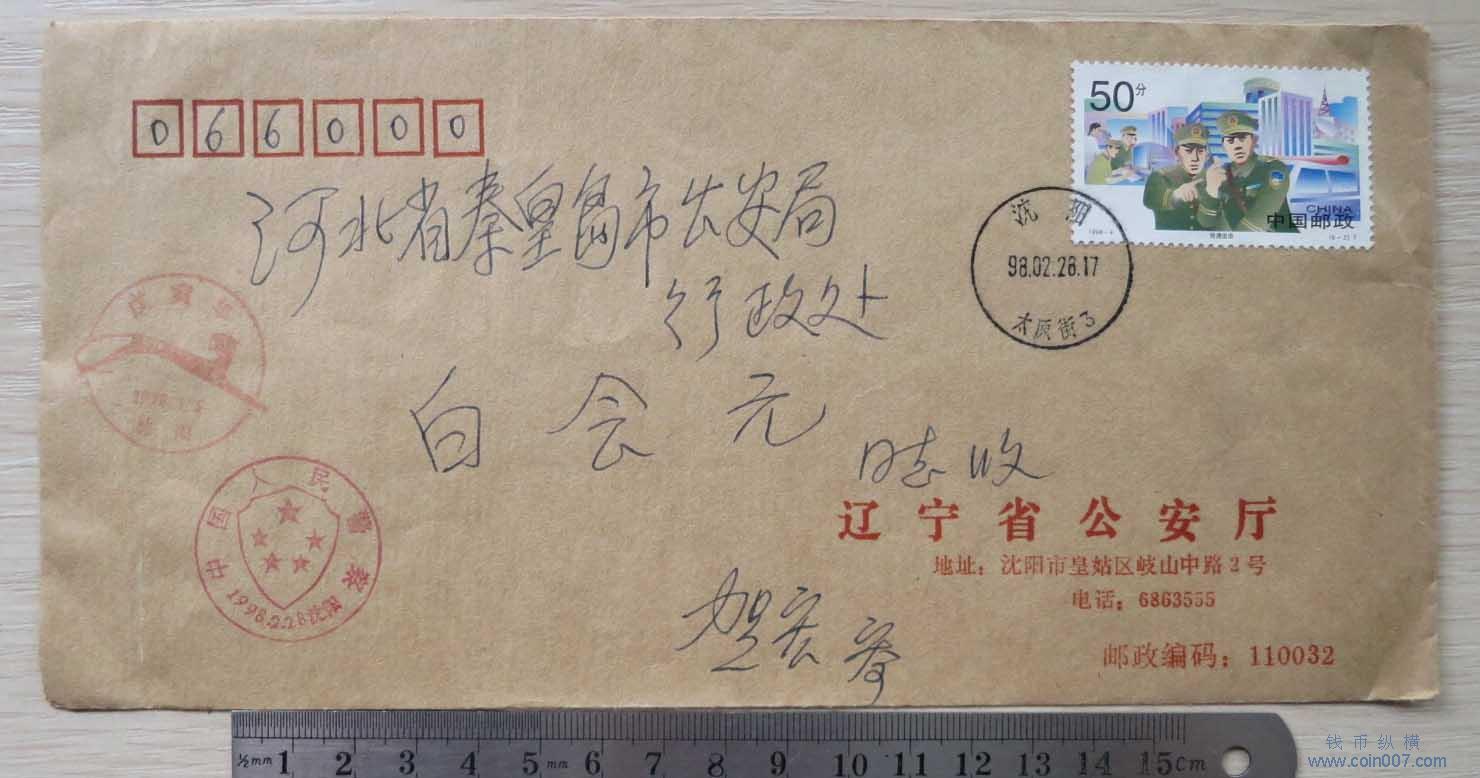 066000
50分
河北省秦皇岛市公安局
行政处
白会元
同志收
CHINA
中国邮政
1998-4
沈阳
98.02.28.17
中国人民警察
1998.2.28沈阳
辽宁省公安厅
地址：沈阳市皇姑区岐山中路2号
电话：6863555
邮政编码：110032
贺宏寄
½mm 1 2 3 4 5 mm 6 7 8 9 10 11 12 13 14 15cm
钱币纵横
www.coin007.com